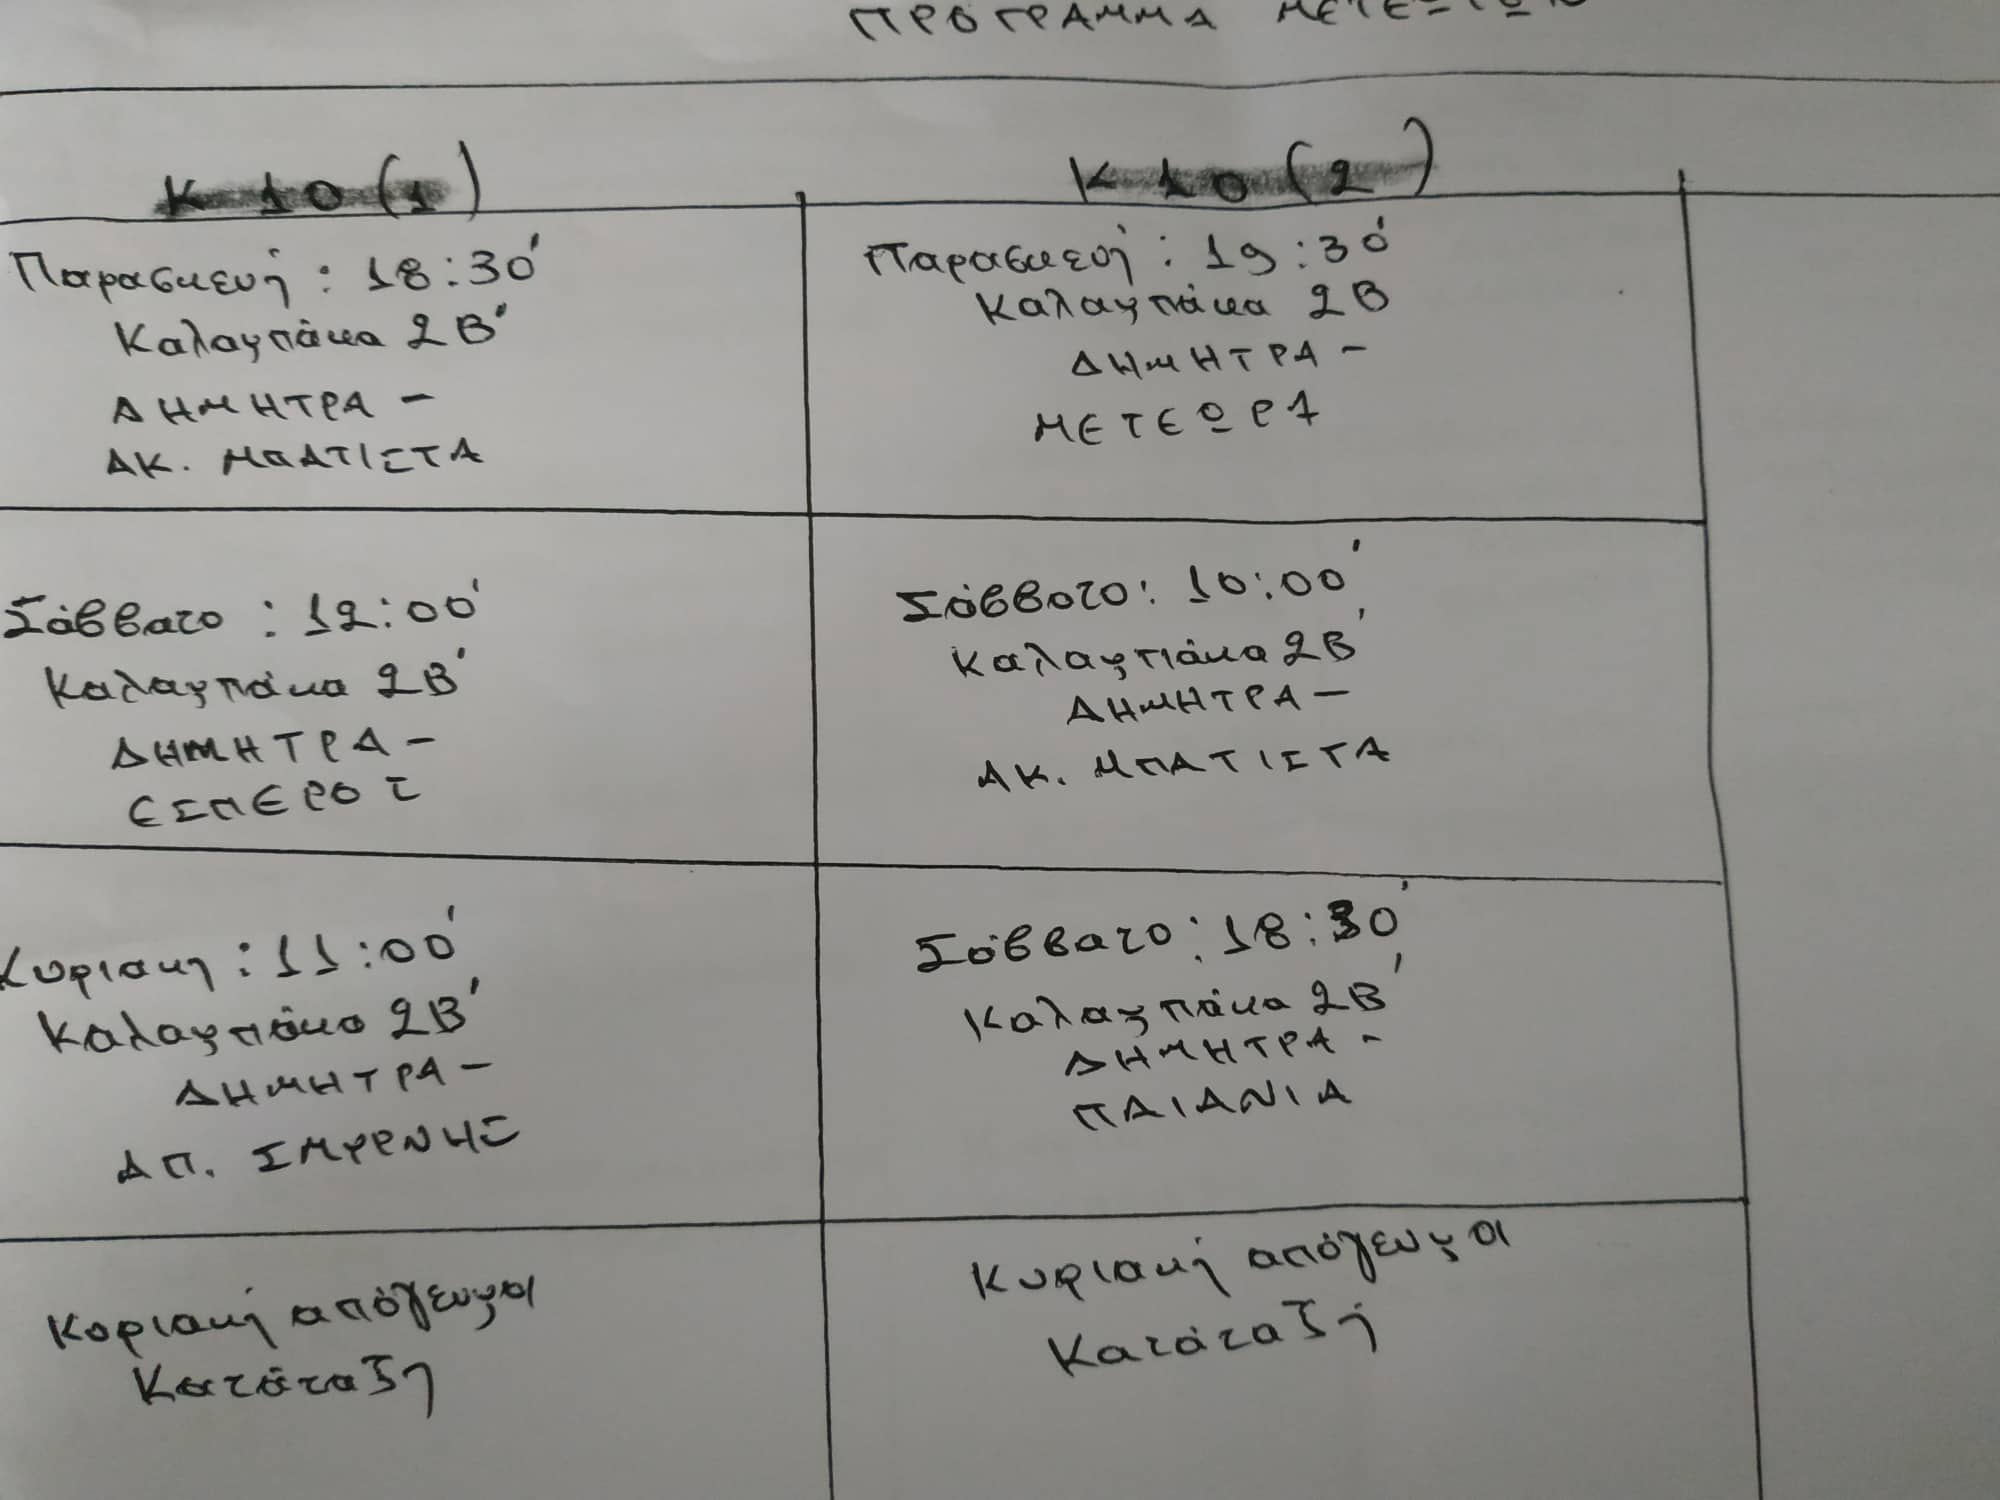 ΠΡΟΓΡΑΜΜΑ
Κ 10 (1)
Παρασκευή : 18:30'
Καλαμπάκα 2Β'
ΔΗΜΗΤΡΑ -
ΑΚ. ΜΠΑΤΙΣΤΑ
Σάββατο : 12:00'
Καλαμπάκα 2Β'
ΔΗΜΗΤΡΑ -
ΕΣΠΕΡΟΣ
Κυριακη : 11:00'
Καλαμπάκα 2Β'
ΔΗΜΗΤΡΑ -
ΑΠ. ΣΜΥΡΝΗΣ
Κυριακή απόγευμα
Κατάταξη
Κ 10 (2)
Παρασκευή : 19:30'
Καλαμπάκα 2Β
ΔΗΜΗΤΡΑ -
ΜΕΤΕΩΡΑ
Σάββατο : 10:00'
Καλαμπάκα 2Β'
ΔΗΜΗΤΡΑ -
ΑΚ. ΜΠΑΤΙΣΤΑ
Σάββατο : 18:30'
Καλαμπάκα 2Β'
ΔΗΜΗΤΡΑ -
ΠΑΙΑΝΙΑ
Κυριακή απόγευμα
Κατάταξή